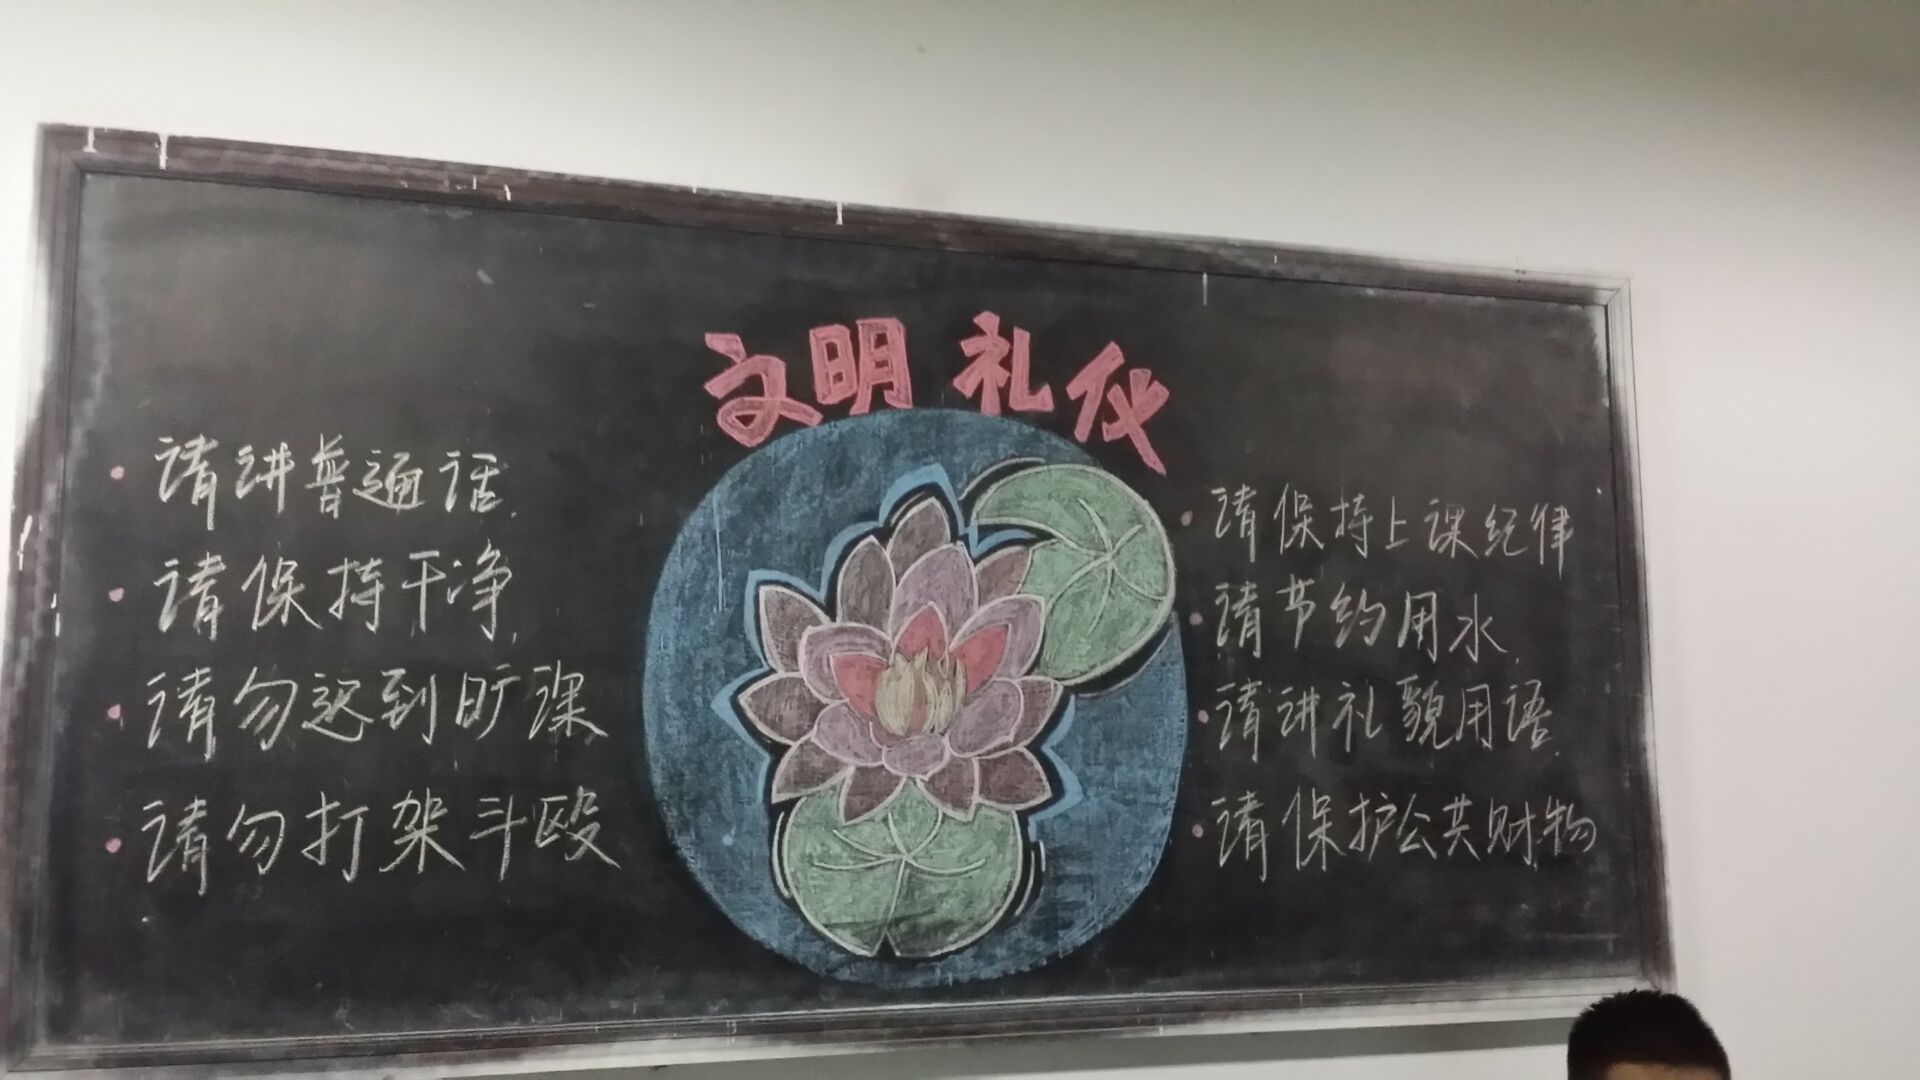 文明礼仪
请讲普通话.
请保持干净.
请勿迟到旷课
请勿打架斗殴
请保持上课纪律
请节约用水.
请讲礼貌用语.
请保护公共财物